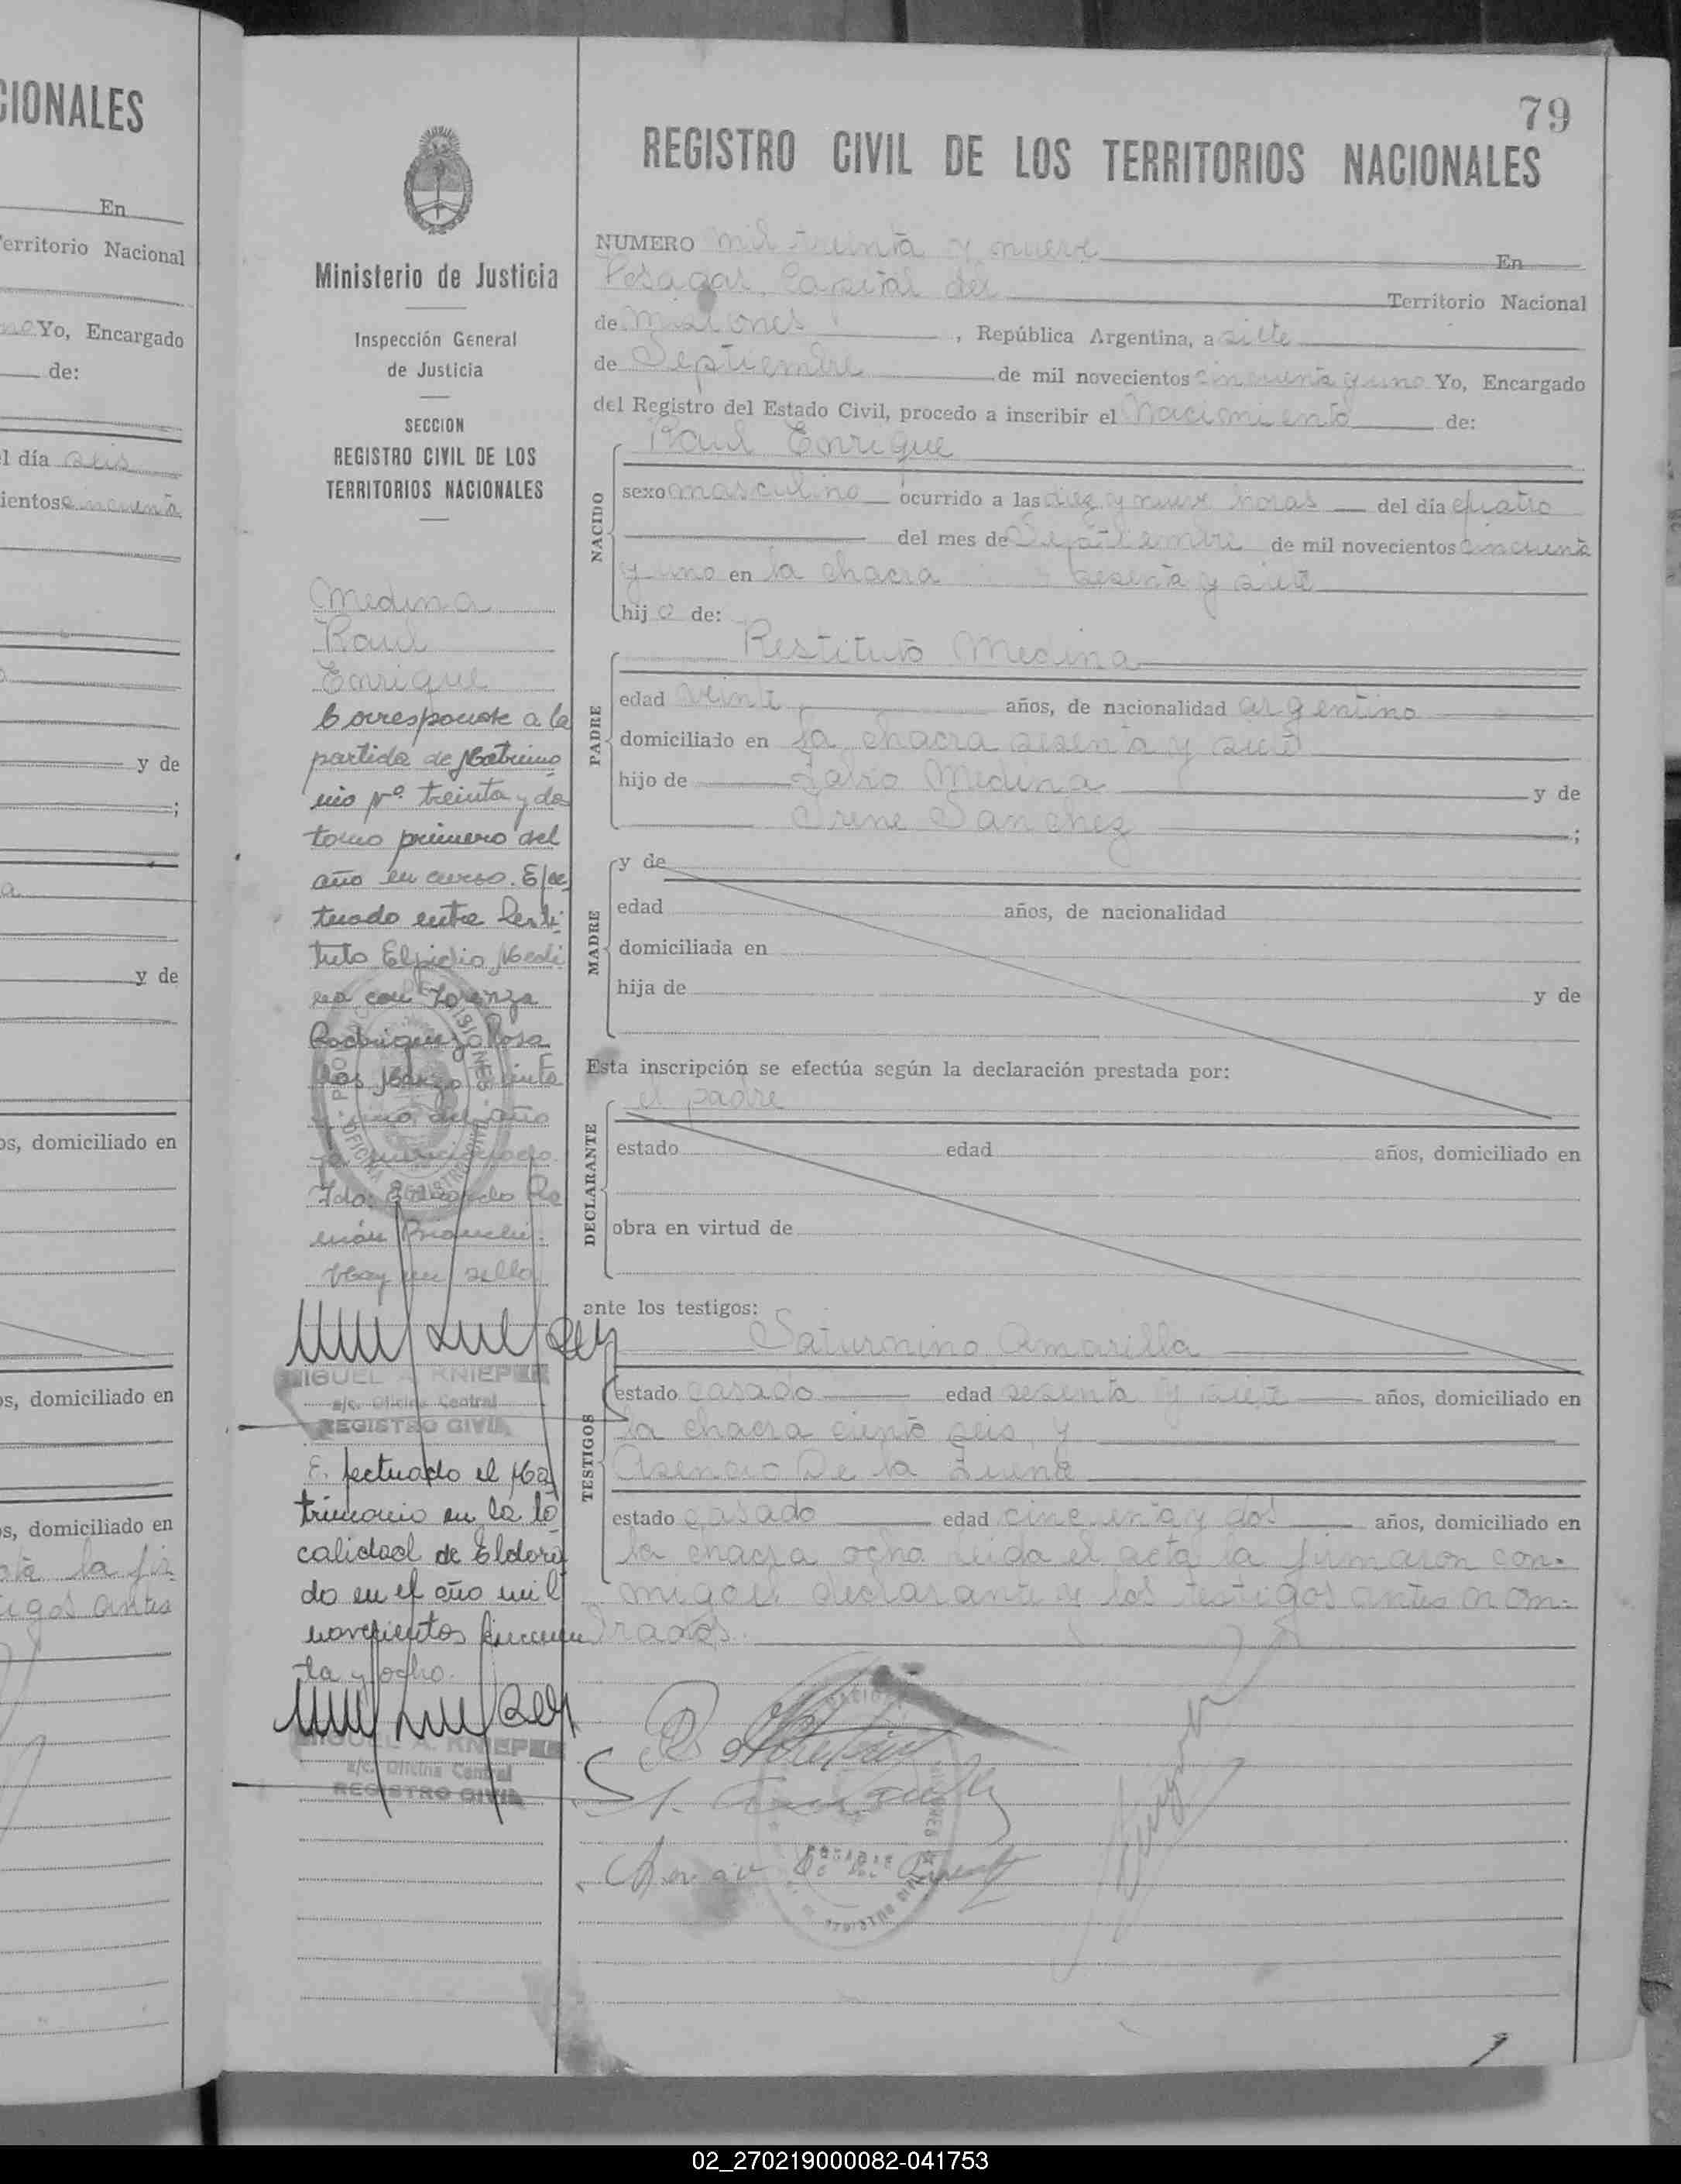 CIONALES
En
erritorio Nacional
Yo, Encargado
de:
l día seis
ientos cincuenta
y de
;
a
y de
os, domiciliado en
os, domiciliado en
s, domiciliado en
la fir
igos antes
79
REGISTRO CIVIL DE LOS TERRITORIOS NACIONALES
Ministerio de Justicia
Inspección General
de Justicia
SECCION
REGISTRO CIVIL DE LOS
TERRITORIOS NACIONALES
Medina
Raul
Enrique
Corresponde a la
partida de Matrimo
nio Nº treinta y dos
tomo primero del
año en curso. Efec
tuado entre Resti
tuto Elpidio Medi
na con Lorenza
Rodriguez Posa
das Marzo
uno del año
ya mencionado.
Fdo:
Hay un sello
MIGUEL A. KNIEPER
a/c. Oficina Central
REGISTRO CIVIL
Efectuado el Ma
trimonio en la lo
calidad de Eldora
do en el año mil
novecientos cincuen
ta y ocho.
MIGUEL A. KNIEPER
a/c. Oficina Central
REGISTRO CIVIL
NUMERO mil treinta y nueve En
Posadas, Capital del Territorio Nacional
de Misiones, República Argentina, a siete
de Septiembre de mil novecientos cincuenta y uno Yo, Encargado
del Registro del Estado Civil, procedo a inscribir el Nacimiento de:
Raul Enrique
NACIDO
sexo masculino ocurrido a las diez y nueve horas del día cuatro
del mes de Septiembre de mil novecientos cincuenta
y uno en la chacra sesenta y siete
hijo de:
PADRE
Restituto Medina
edad veinte años, de nacionalidad argentino
domiciliado en la chacra sesenta y siete
hijo de Medina y de
Irene Sanchez ;
MADRE
y de
edad años, de nacionalidad
domiciliada en
hija de y de
Esta inscripción se efectúa según la declaración prestada por:
el padre
DECLARANTE
estado edad años, domiciliado en
obra en virtud de
ante los testigos:
Saturnino Amarilla
TESTIGOS
estado casado edad sesenta y siete años, domiciliado en
la chacra ciento seis, y
Asencio De la
estado casado edad cincuenta y dos años, domiciliado en
la chacra ocho leida el acta la firmaron con-
migo el declarante y los testigos antes nom-
brados.
02_270219000082-041753